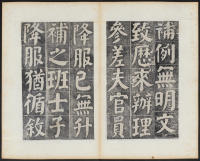 補例無明文
致歷來辦理
參差夫官員
降服已無升
補之班士子
降服猶循敘